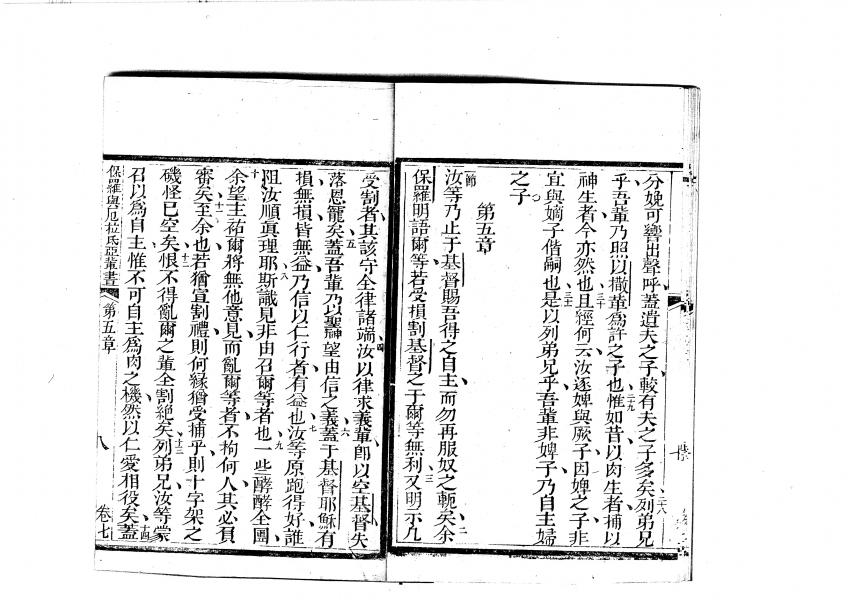 分娩可響出聲呼蓋遺夫之子較有夫之子多矣列弟兄
二八
乎吾輩乃照以撒輩爲許之子也惟如昔以肉生者捕以
二九
神生者今亦然也且經何云汝逐婢與厥子因婢之子非
三十
宜與嫡子偕嗣也是以列弟兄乎吾輩非婢子乃自主婦
三一
之子
第五章
節
汝等乃止于基督賜吾得之自主而勿再服奴之軛矣余
二
保羅明語爾等若受損割基督之于爾等無利又明示凡
三
受割者其該守全律諸端汝以律求義輩卽以空基督失
四
落恩寵矣蓋吾輩乃以聖神望由信之義蓋于基督耶穌有
五 六
損無損皆無益乃信以仁行者有益也汝等原跑得好誰
七
阻汝順眞理耶斯識見非由召爾等者也一些酵酵全團
八 九
十
余望主祐爾將無他意見而亂爾等者不拘何人其必負
審矣至余也若猶宣割禮則何緣猶受捕乎則十字架之
十一
礙怪已空矣恨不得亂爾之輩全割絶矣列弟兄汝等蒙
十二 十三
召以爲自主惟不可自主爲肉之機然以仁愛相役矣蓋
十四
保羅與厄拉氏亞輩書 第五章 八 卷七